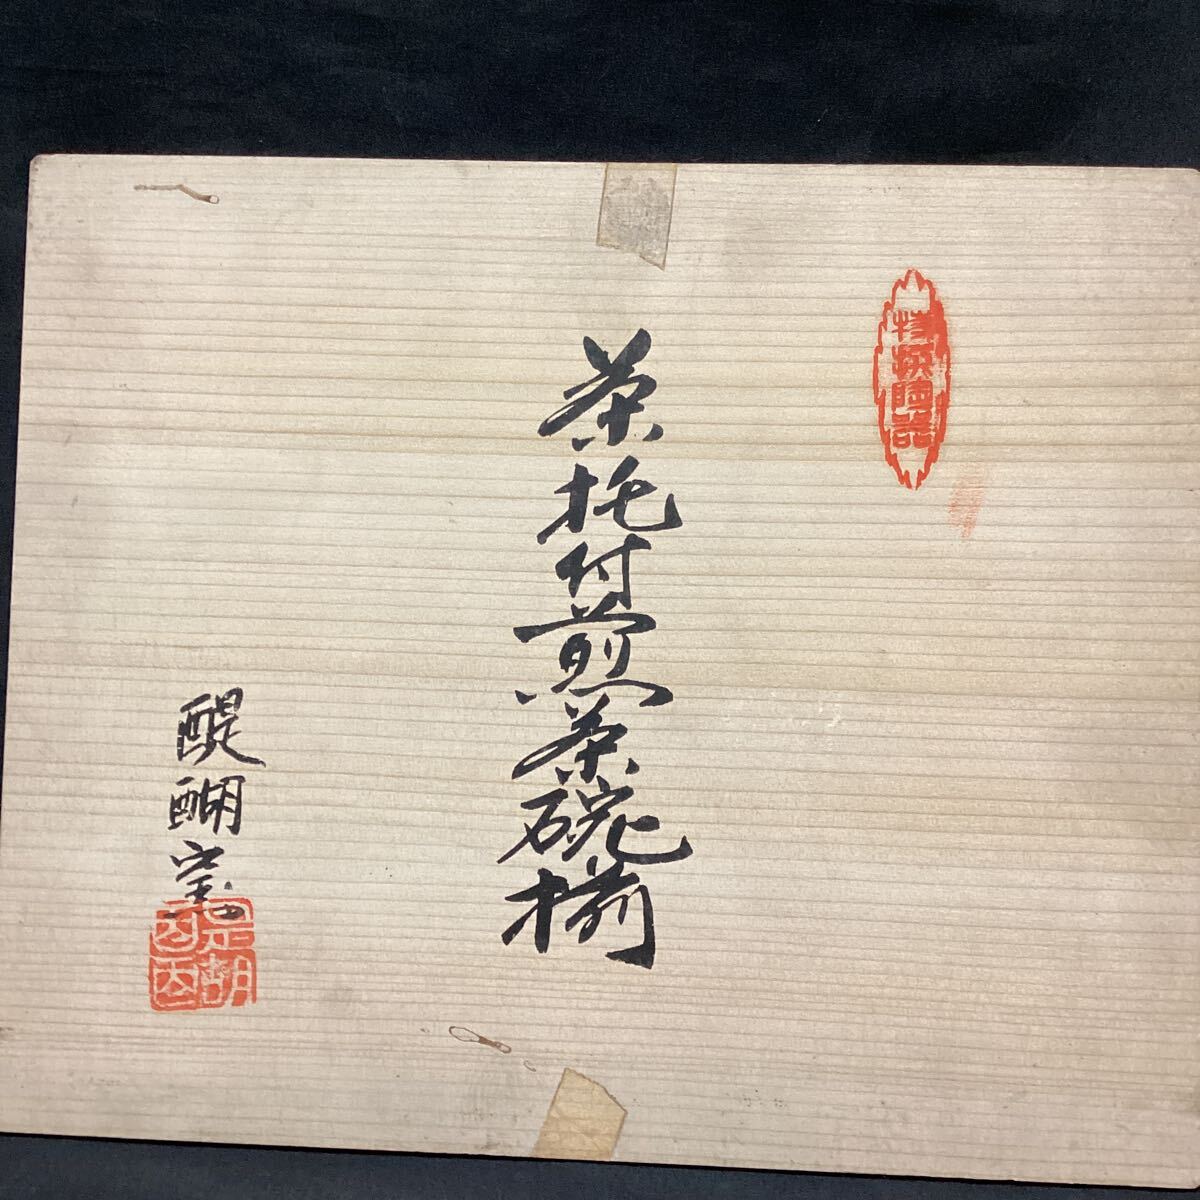 特撰陶器
茶托付煎茶碗揃
醍醐窯
醍醐